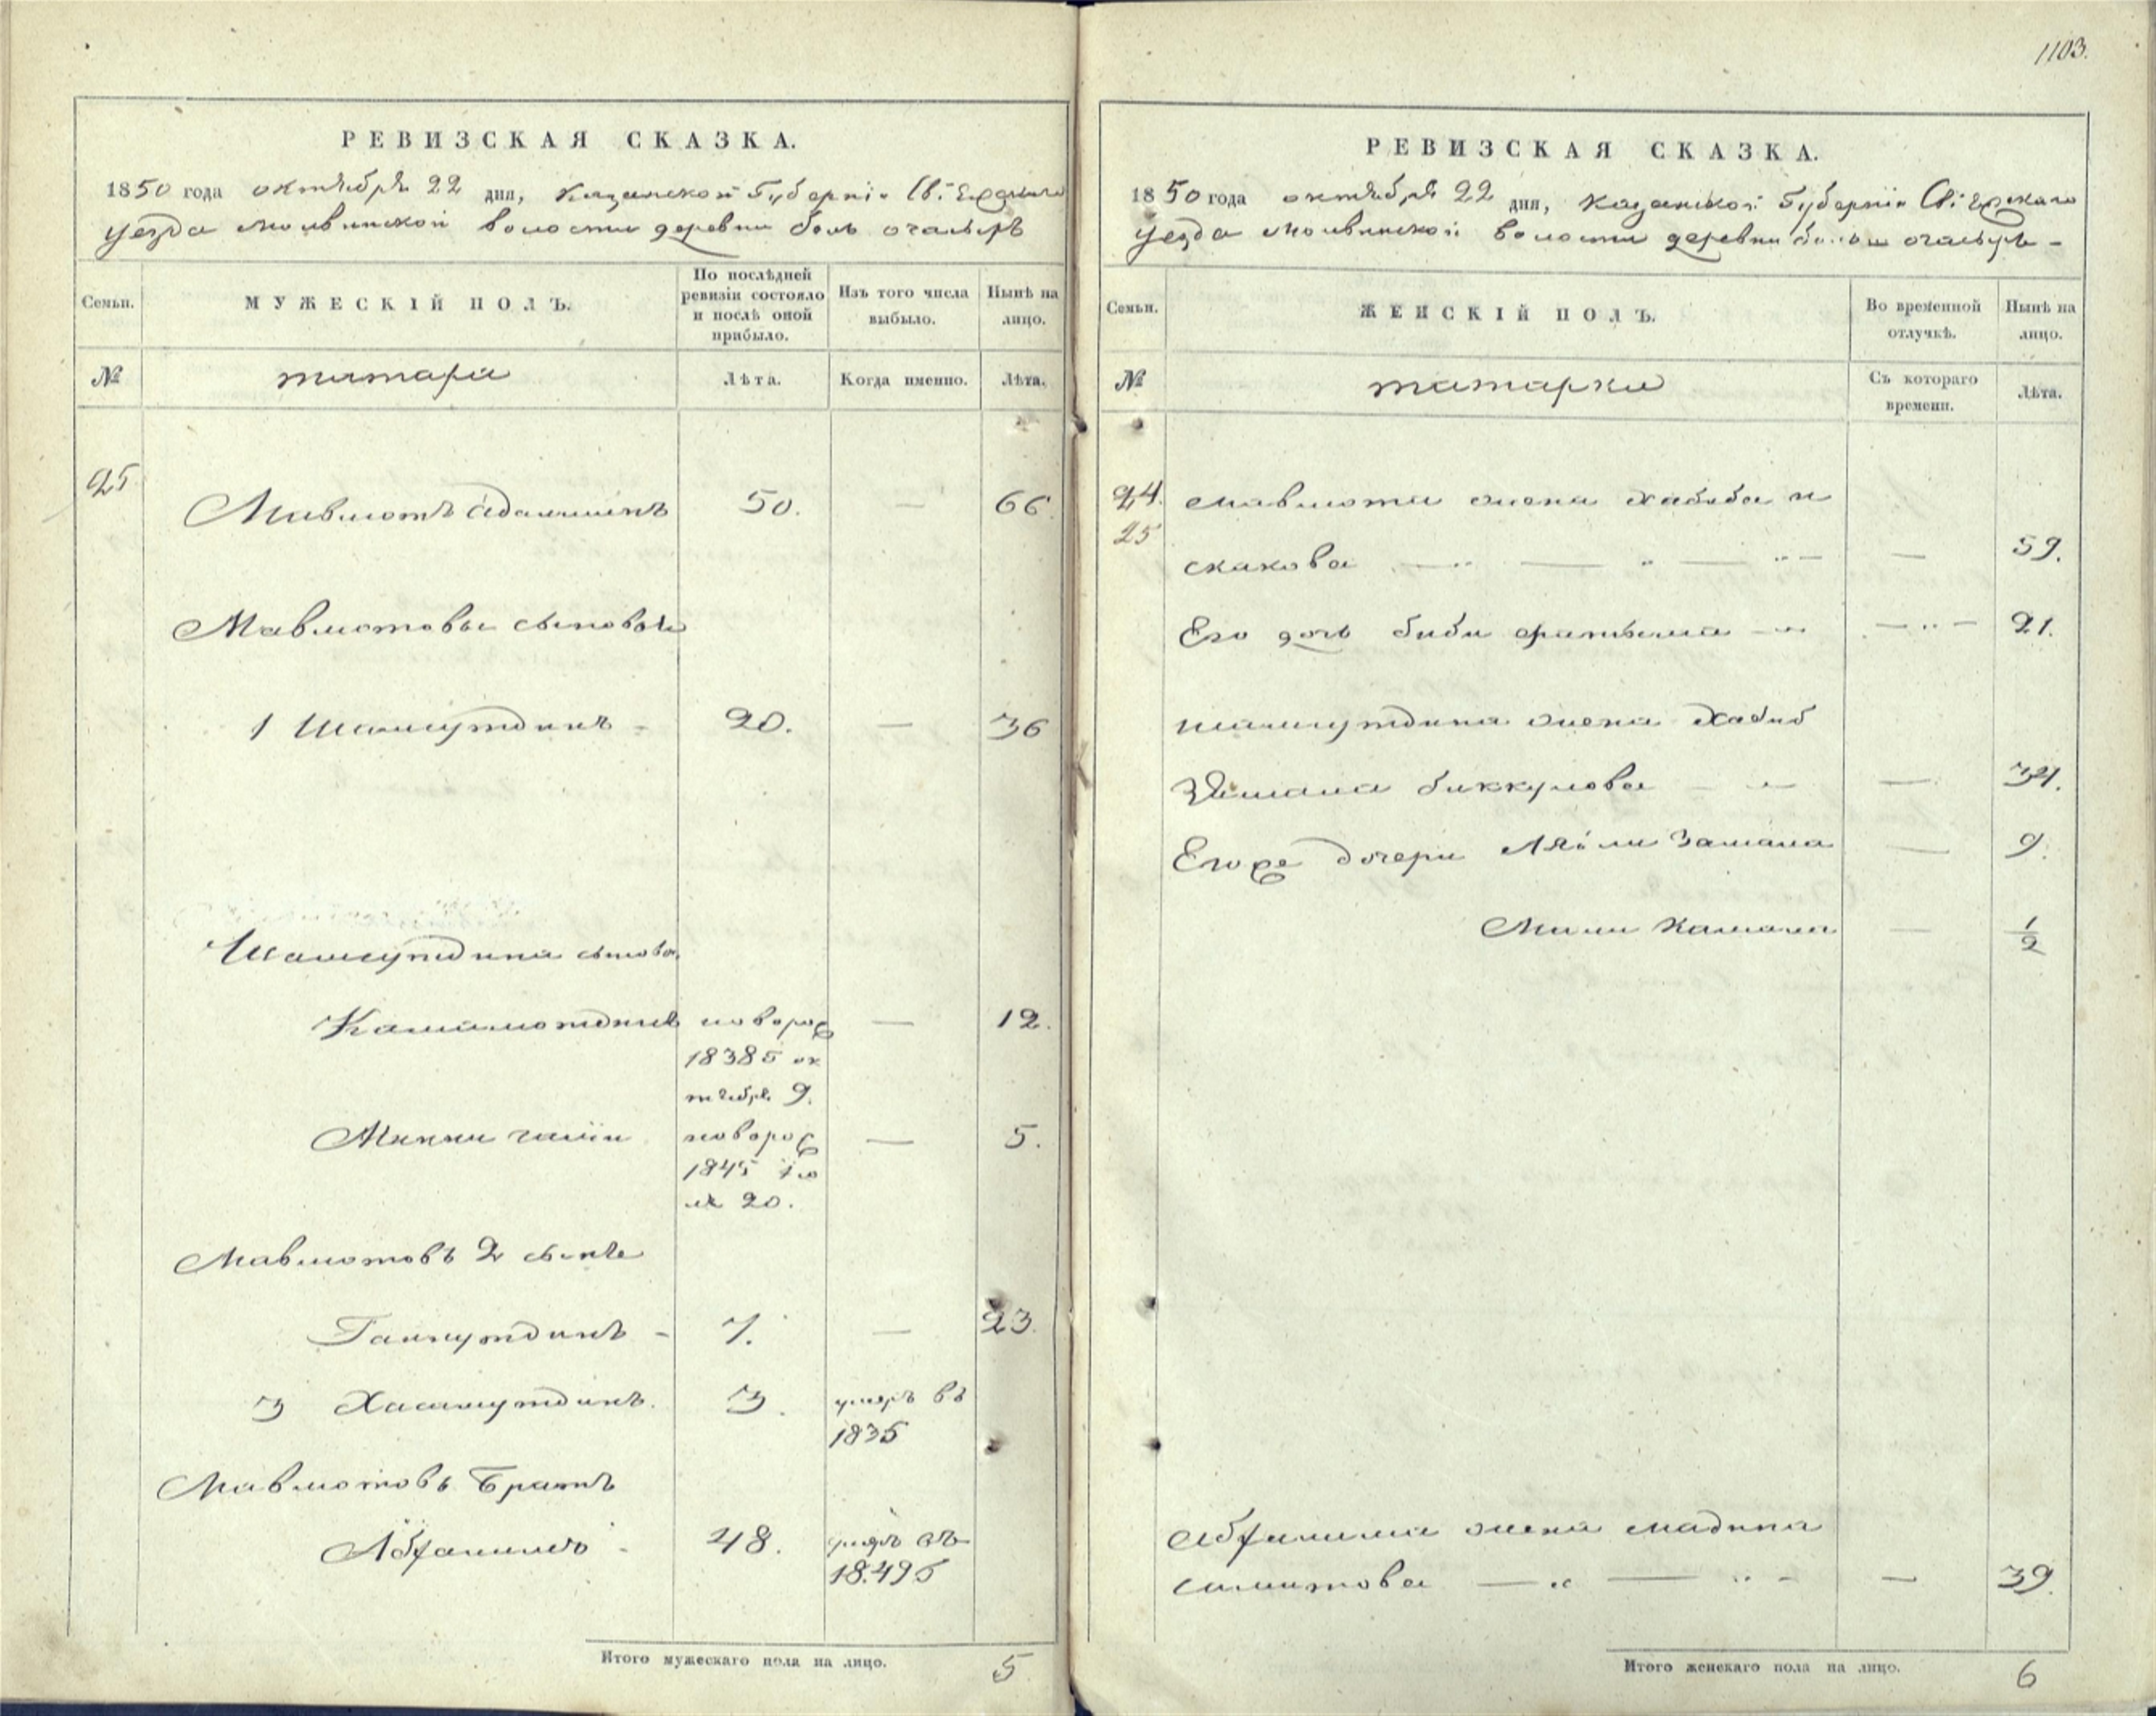 1103.
РЕВИЗСКАЯ СКАЗКА.
1850 года октября 22 дня, Казанской Губерніи Свіяжскаго
уезда Молвинской волости деревни боль очасырь
Семьи.
МУЖЕСКІЙ ПОЛЪ.
По послѣдней ревизіи состояло и послѣ оной прибыло.
Изъ того числа выбыло.
Нынѣ на лицо.
№
татара
Лѣта.
Когда именно.
Лѣта.
25 Мавлютъ 50. — 66.
Мавлютовы сыновья
1 Шамсутдинъ - 20. — 36
Шамсутдина сынова
Камалютдинъ новорож — 12.
18385 ок
тября 9.
Минни галіи новорож — 5.
1845 ію
ля 20.
Мавлютовъ 2 сынъ
Гайнутдинъ - 7. — 23.
3 Хасамутдинъ. 3. умеръ въ
1835
Мавлютовъ Братъ
Абраимъ - 48. умеръ въ
18.495
Итого мужескаго пола на лицо. 5
РЕВИЗСКАЯ СКАЗКА.
1850 года октября 22 дня, Казанской Губерніи
уезда Молвинской волости деревни больш очасырь -
Семьи.
ЖЕНСКІЙ ПОЛЪ.
Во временной отлучкѣ.
Нынѣ на лицо.
№
татарки
Съ котораго времени.
Лѣта.
24. Мавлюта жена Хабиба и
25 скакова — 59.
Его дочь биби фатыма — 21.
Шамсутдина жена Хабиб
Замана биккулова — 34.
Егоже дочери Ляйли Замана — 9.
Мили Камала — 1/2
Абраима жена мадина
симитова — 39.
Итого женскаго пола на лицо. 6